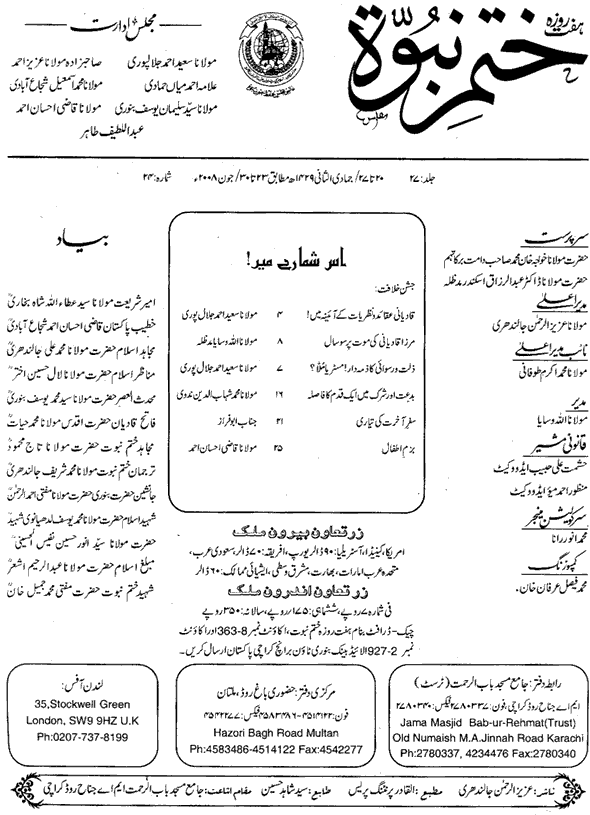 ہفت روزہ
ختم نبوۃ
مجلس ادارت
مولانا سعید احمد جلالپوری
صاحبزادہ مولانا عزیز احمد
علامہ احمد میاں حمادی
مولانا محمد اسمعیل شجاع آبادی
مولانا سید سلیمان یوسف بنوری
مولانا قاضی احسان احمد
عبداللطیف طاہر
جلد: ۲۷
۲۰ تا ۲۷/ جمادی الثانی ۱۴۲۹ھ مطابق ۲۳ تا ۳۰/ جون ۲۰۰۸ء
شمارہ: ۲۴
سرپرست
حضرت مولانا خواجہ خان محمد صاحب دامت برکاتہم
حضرت مولانا ڈاکٹر عبدالرزاق اسکندر مدظلہ
مدیر اعلیٰ
مولانا عزیز الرحمٰن جالندھری
نائب مدیر اعلیٰ
مولانا محمد اکرم طوفانی
مدیر
مولانا اللہ وسایا
قانونی مشیر
حشمت علی حبیب ایڈووکیٹ
منظور احمد میو ایڈووکیٹ
سرکولیشن منیجر
محمد انور رانا
کمپوزنگ
محمد فیصل عرفان خان۔
اس شمارے میں!
جشن خلافت:
قادیانی عقائد و نظریات کے آئینہ میں! ۴ مولانا سعید احمد جلال پوری
مرزا قادیانی کی موت پر سو سال ۸ مولانا اللہ وسایا مدظلہ
ذلت و رسوائی کا ذمہ دار! مسٹر یا مُلّا؟ ۷ مولانا سعید احمد جلال پوری
بدعت اور شرک میں ایک قدم کا فاصلہ ۱۶ مولانا محمد شہاب الدین ندوی
سفر آخرت کی تیاری ۲۱ جناب ابوفراز
بزم اطفال ۲۵ مولانا قاضی احسان احمد
زرتعاون بیرون ملک
امریکا، کینیڈا، آسٹریلیا: ۹۰ ڈالر یورپ، افریقہ: ۷۰ ڈالر، سعودی عرب،
متحدہ عرب امارات، بھارت، مشرق وسطیٰ، ایشیائی ممالک: ۶۰ ڈالر
زرتعاون اندرون ملک
فی شمارہ ۷ روپے، ششماہی: ۱۷۵ روپے، سالانہ: ۳۵۰ روپے
چیک-ڈرافٹ بنام ہفت روزہ ختم نبوت، اکاؤنٹ نمبر 8-363 اور اکاؤنٹ
نمبر 2-927 الائیڈ بینک بنوری ٹاؤن برانچ کراچی پاکستان ارسال کریں۔
بیاد
امیر شریعت مولانا سید عطاء اللہ شاہ بخاریؒ
خطیب پاکستان قاضی احسان احمد شجاع آبادیؒ
مجاہد اسلام حضرت مولانا محمد علی جالندھریؒ
مناظر اسلام حضرت مولانا لال حسین اخترؒ
محدث العصر حضرت مولانا سید محمد یوسف بنوریؒ
فاتح قادیان حضرت اقدس مولانا محمد حیاتؒ
مجاہد ختم نبوت حضرت مولانا تاج محمودؒ
ترجمان ختم نبوت مولانا محمد شریف جالندھریؒ
جانشین حضرت بنوری حضرت مولانا مفتی احمد الرحمٰنؒ
شہید اسلام حضرت مولانا محمد یوسف لدھیانوی شہیدؒ
حضرت مولانا سید انور حسین نفیس الحسینیؒ
مبلغ اسلام حضرت مولانا عبدالرحیم اشعرؒ
شہید ختم نبوت حضرت مفتی محمد جمیل خانؒ
رابطہ دفتر: جامع مسجد باب الرحمت (ٹرسٹ)
ایم اے جناح روڈ کراچی، فون: ۲۷۸۰۳۳۷ فیکس: ۲۷۸۰۳۴۰
Jama Masjid Bab-ur-Rehmat(Trust)
Old Numaish M.A.Jinnah Road Karachi
Ph:2780337, 4234476 Fax:2780340
مرکزی دفتر: حضوری باغ روڈ، ملتان
فون: ۴۵۱۴۱۲۲-۴۵۸۳۴۸۶ فیکس: ۴۵۴۲۲۷۷
Hazori Bagh Road Multan
Ph:4583486-4514122 Fax:4542277
لندن آفس:
35,Stockwell Green
London, SW9 9HZ U.K
Ph:0207-737-8199
ناشر: عزیز الرحمٰن جالندھری مطبع: القادر پرنٹنگ پریس طابع: سید شاہد حسین مقام اشاعت: جامع مسجد باب الرحمت ایم اے جناح روڈ کراچی